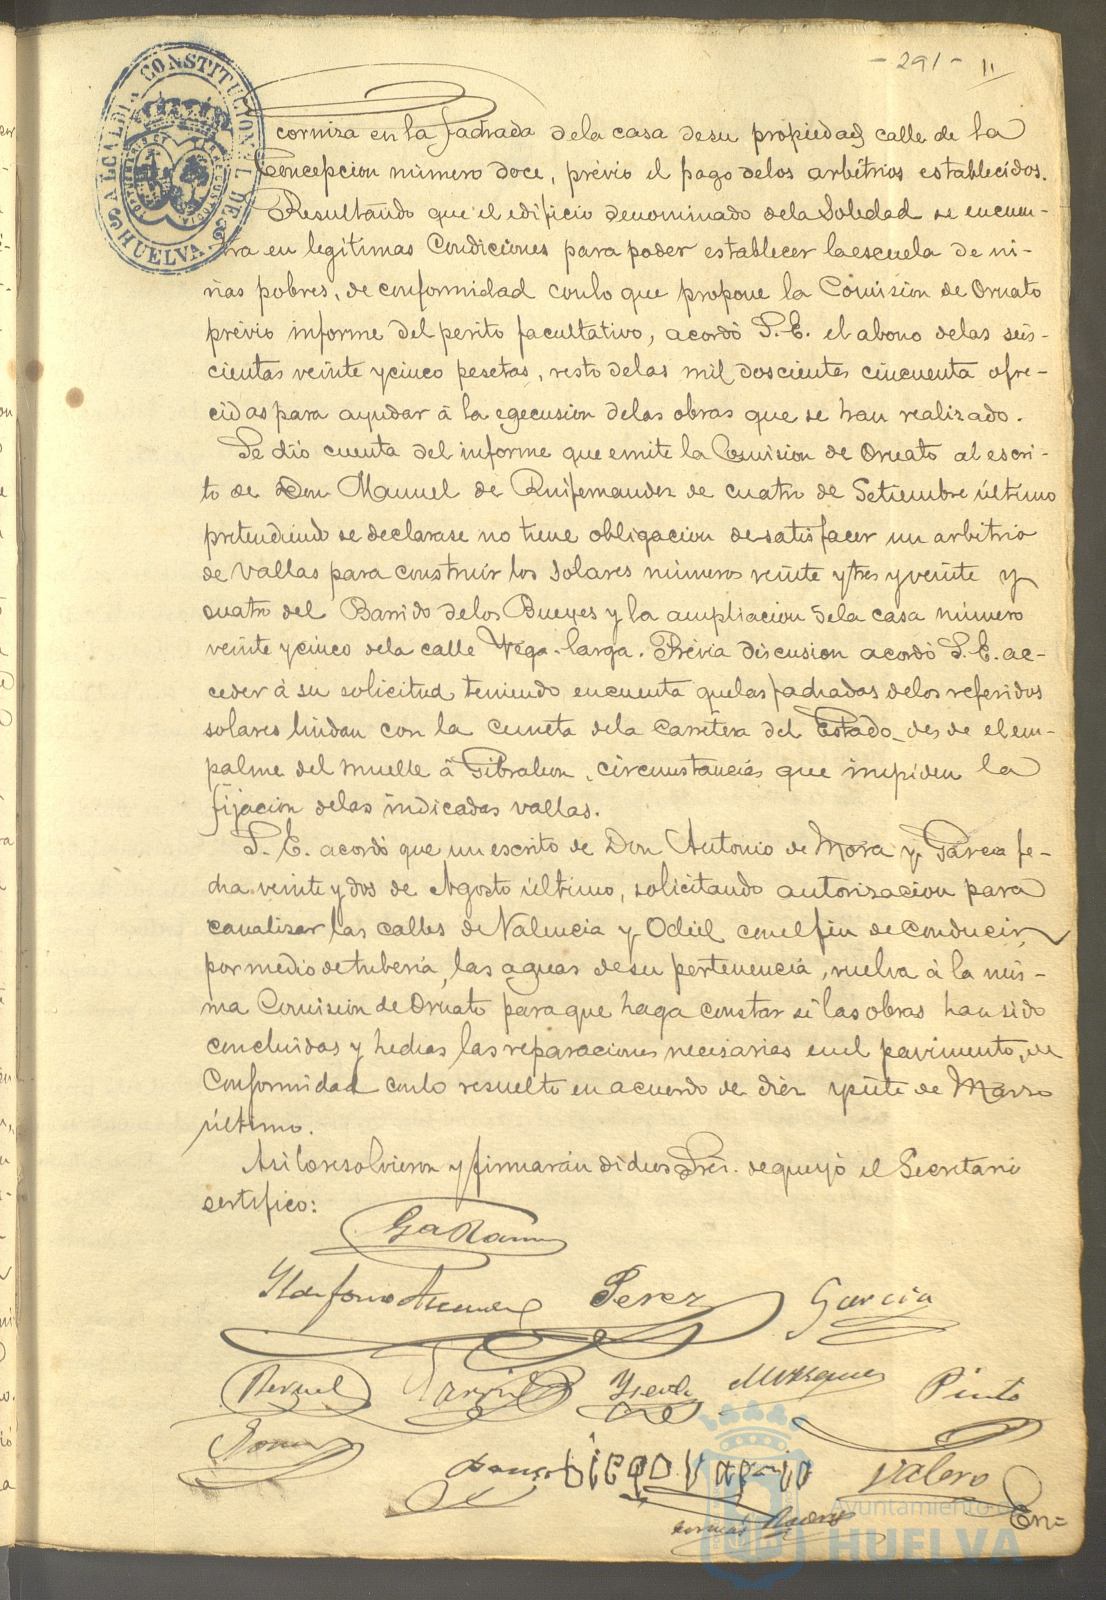 - 291 - 11
ALCALDIA CONSTITUCIONAL DE HUELVA
corniza en la fachada de la casa de su propiedad calle de la
Concepcion número doce, prévio el pago de los arbitrios establecidos.
Resultando que el edificio denominado de la Soledad se encuen-
tra en legitimas Condiciones para poder establecer la escuela de ni-
ñas pobres, de conformidad con lo que propone la Comision de Ornato
prévio informe del perito facultativo, acordó S.E. el abono de las seis-
cientas veinte y cinco pesetas, resto de las mil doscientas cincuenta ofre-
cidas para ayudar á la egecusion de las obras que se han realizado.
Se dió cuenta del informe que emite la Comision de Ornato al escri-
to de Don Manuel de Ruifernandez de cuatro de Setiembre último
pretendiendo se declarase no tiene obligacion de satisfacer un arbitrio
de vallas para construir los solares números veinte y tres y veinte y
cuatro del Barrido de los Bueyes y la ampliacion de la casa número
veinte y cinco de la calle Vega-larga. Prévia discusion acordó S.E. ac-
ceder á su solicitud teniendo en cuenta que las fachadas de los referidos
solares lindan con la cuneta de la Carretera del Estado desde el em-
palme del muelle á Gibraleon, circunstancias que impiden la
fijacion de las indicadas vallas.
S.E. acordó que un escrito de Don Antonio de Mora y Garcia fe-
cha veinte y dos de Agosto último, solicitando autorizacion para
canalizar las calles de Valencia y Odiel con el fin de conducir
por medio de tuberia, las aguas de su pertenencia, vuelva á la mis-
ma Comision de Ornato para que haga constar si las obras han sido
concluidas y hechas las reparaciones necesarias en el pavimento, de
Conformidad con lo resuelto en acuerdo de diez y siete de Marzo
último.
Asi lo resolvieron y firmarán dichos Sres. de que yo el Secretario
sertifico:
Garcia
Perez
Pinto
Diego Vaz
Valero
En=
Ayuntamiento de
HUELVA